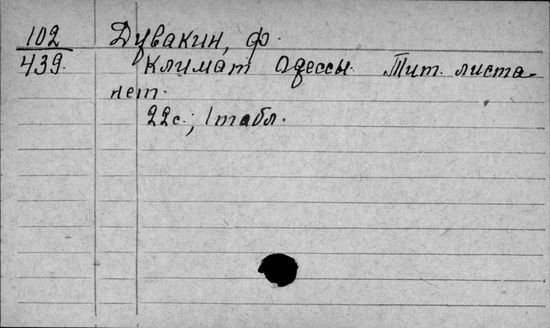 102 Дувакин, Ф.
439. Климат Одессы. Тит. листа-
нет.
22с.; 1 табл.